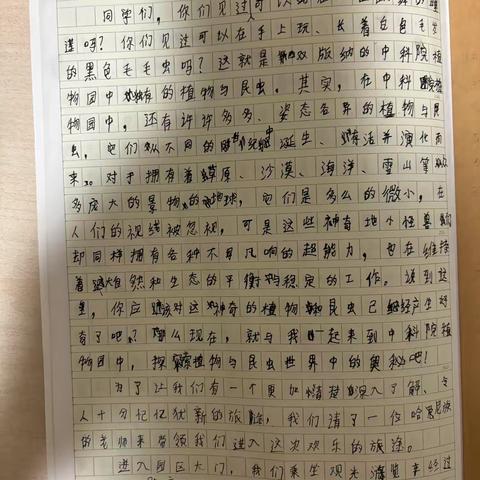 同学们，你们见过可以
谨吗？你们见过可以在手上玩、长着白色毛发
的黑色毛毛虫吗？这就是西双版纳的中科院植
物园中独有的植物与昆虫。其实，在中科院植
物园中，还有许许多多、姿态各异的植物与昆
虫，它们从不同的世纪中诞生、存活并演化而
来。对于拥有着草原、沙漠、海洋、雪山等
多庞大的景物的地球，它们是多么的微小，在
人们的视线被忽视，可是这些神奇地小怪兽们
却同样拥有各种不可风响的超能力，也在维持
着大自然和生态的平衡与稳定的工作。读到这
里，你应该对这神奇的植物和昆虫已经产生好
奇了吧？那么现在，就与我一起来到中科院植
物园中，探索植物与昆虫世界中的奥秘吧！
为了让我们有一个更加清楚深入了解、令
人十分记忆犹新的旅途，我们请了一位哈尼族
的老师来带领我们进入这次欢乐的旅途。
进入园区大门，我们乘坐观光游览车经过